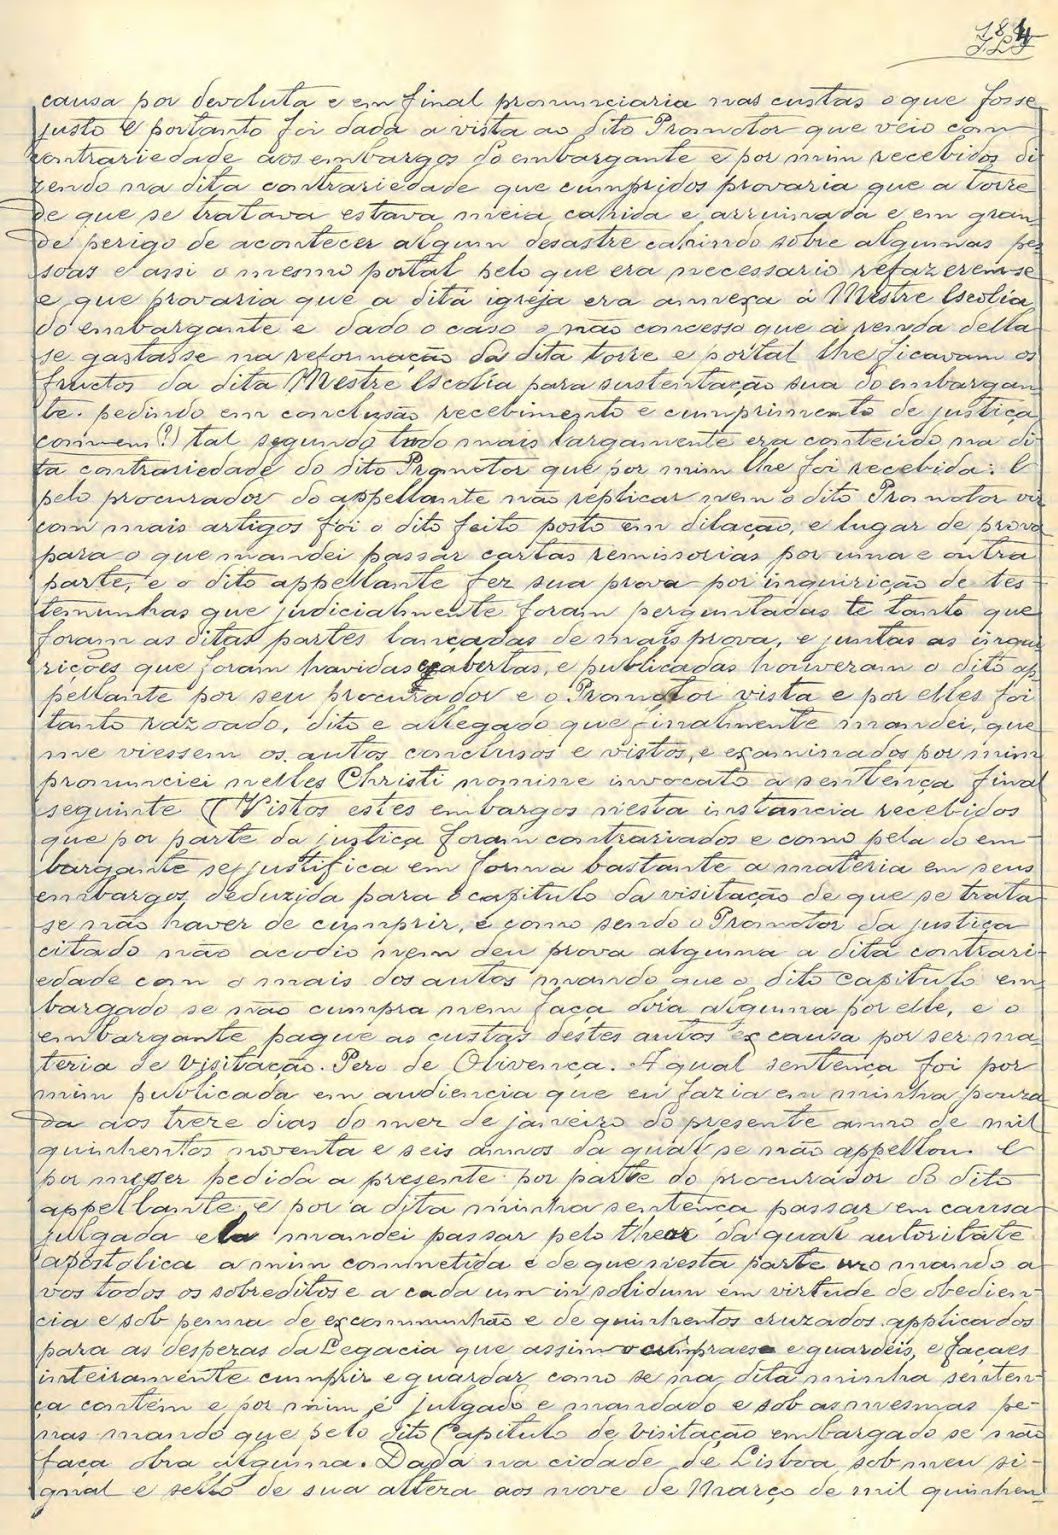 184
causa por devoluta e em final pronunciaria nas custas o que fosse
justo E portanto foi dada a vista ao dito Promotor que veio com
contrariedade aos embargos do embargante e por mim recebidos di
zendo na dita contrariedade que cumpridos provaria que a torre
de que se tratava estava meia cahida e arruinada e em gran
de perigo de acontecer algum desastre cahindo sobre algumas pes
soas e assi o mesmo portal pelo que era necessario refazerem-se
e que provaria que a dita igreja era annexa á Mestre Escolia
do embargante e dado o caso e não concesso que a renda della
se gastasse na reformação da dita torre e portal lhe ficavam os
fructos da dita Mestre Escolia para sustentação sua do embargan
te. pedindo em conclusão recebimento e cumprimento de justiça
convem (?) tal segundo tudo mais largamente era conteúdo na di
ta contrariedade do dito Promotor que por mim lhe foi recebida: E
pelo procurador do appellante não replicar nem o dito Promotor vir
com mais artigos foi o dito feito posto em dilação, e lugar de prova
para o que mandei passar cartas remissorias por uma e outra
parte, e o dito appellante fez sua prova por inquirição de tes
temunhas que judicialmente foram perguntadas te tanto que
foram as ditas partes lançadas de mais prova, e juntas as inqui
rições que foram havidas e abertas, e publicadas houveram o dito ap
pellante por seu procurador e o Promotor vista e por elles foi
tanto razoado, dito e allegado que finalmente mandei, que
me viessem os autos conclusos e vistos, e examinados por mim
pronunciei nelles Christi nomine invocato a sentença final
seguinte (Vistos estes embargos nesta instancia recebidos
que por parte da justiça foram contrariados e como pela do em-
bargante se justifica em forma bastante a materia em seus
embargos deduzida para o capitulo da visitação de que se trata
se não haver de cumprir, e como sendo o Promotor da justiça
citado não acodio nem deu prova alguma a dita contrari-
edade com o mais dos autos mando que o dito capitulo em
bargado se não cumpra nem faça obra alguma por elle, e o
embargante pague as custas destes autos ex causa por ser ma-
teria de visitação. Pero de Olivença. A qual sentença foi por
mim publicada em audiencia que eu fazia em minha pouza
da aos treze dias do mez de janeiro do presente anno de mil
quinhentos noventa e seis annos da qual se não appellou. E
por me ser pedida a presente por parte do procurador do dito
appellante e por a dita minha sentença passar em causa
julgada ela mandei passar pelo theor da qual autoritate
apostolica a mim commetida e de que nesta parte uso mando a
vos todos os sobreditos e a cada um in solidum em virtude de obedien-
cia e sob penna de excommunhão e de quinhentos cruzados applicados
para as despezas da Legacia que assim o cumpraes e guardeis, e façaes
inteiramente cumprir e guardar como se na dita minha senten-
ça contém e por mim é julgado e mandado e sob as mesmas pe-
nas mando que pelo dito Capitulo de visitação embargado se não
faça obra alguma. Dada na cidade de Lisboa sob meu si-
gnal e sello de sua alteza aos nove de Março de mil quinhen-